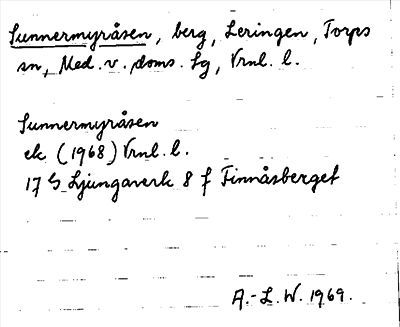 Sunnermyråsen, berg, Leringen, Torps
sn, Med. v. doms. lg, Vrnl. l.
Sunnermyråsen
ek (1968) Vrnl. l.
17 G Ljungaverk 8 f Finnåsberget
A.-L. W. 1969.